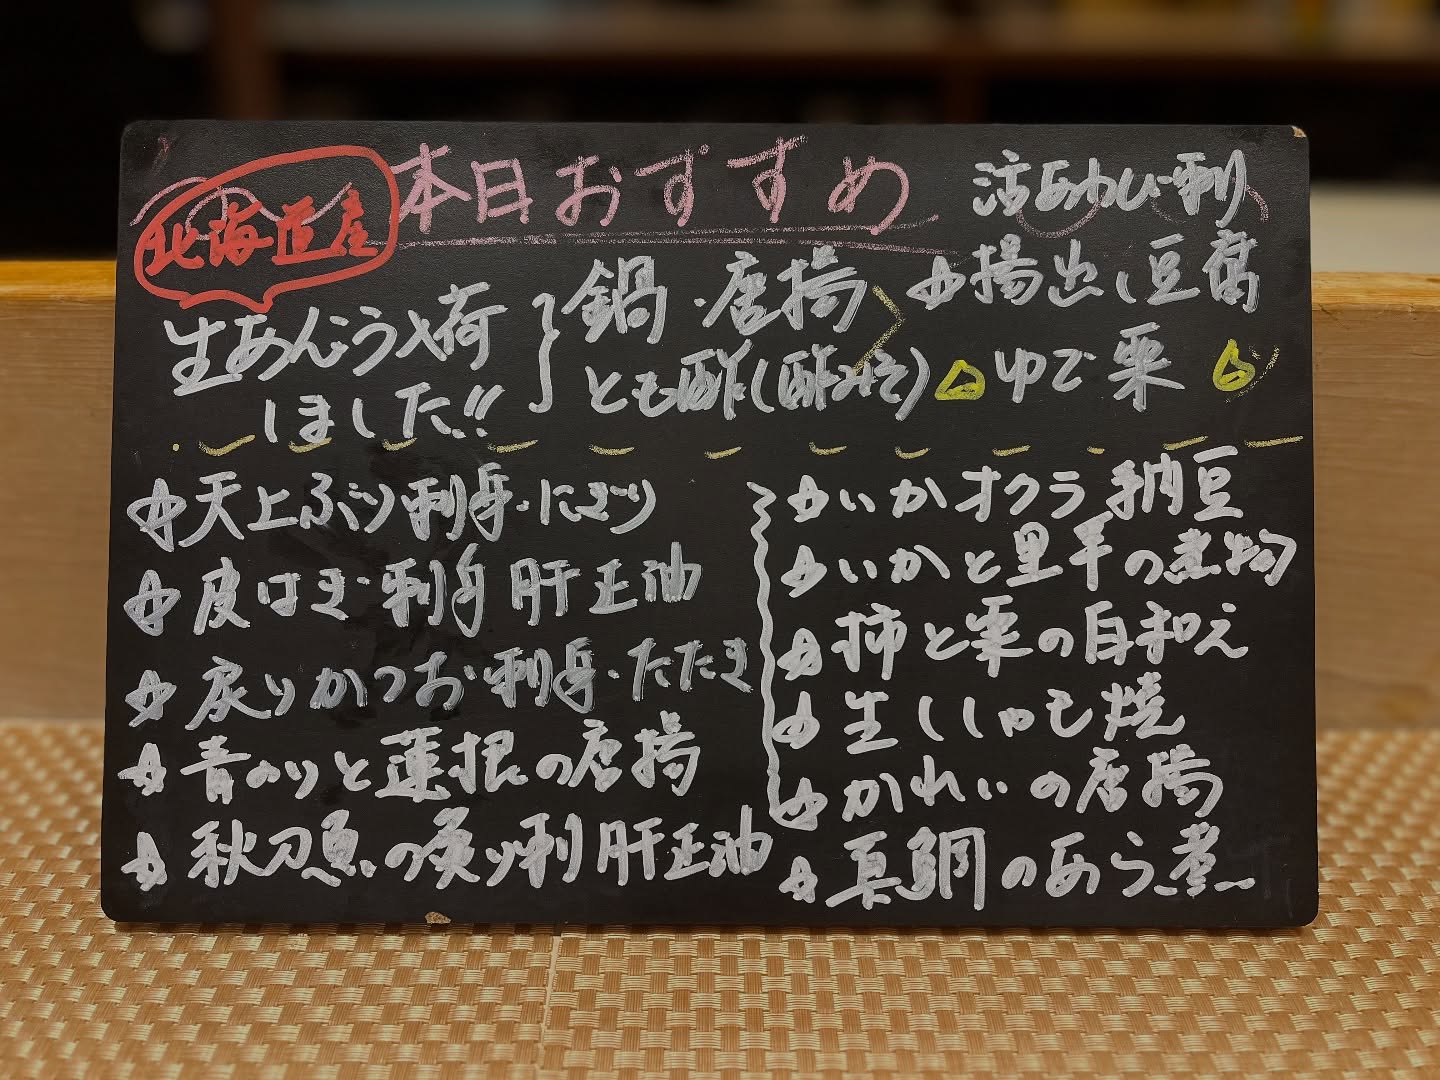 本日おすすめ
北海道産
生あんこう入荷
しました!!
鍋・唐揚
とも酢(酢みそ)
活あわび刺
☆揚出し豆腐
ゆで栗
☆天上ぶり刺身・にぎり
☆皮はぎ刺身 肝正油
☆炙りかつお刺身・たたき
☆青のりと蓮根の唐揚
☆秋刀魚の炙り刺 肝正油
☆いかオクラ納豆
☆いかと里芋の煮物
☆柿と栗の白和え
☆生ししゃも焼
☆かれいの唐揚
☆真鯛のあら煮